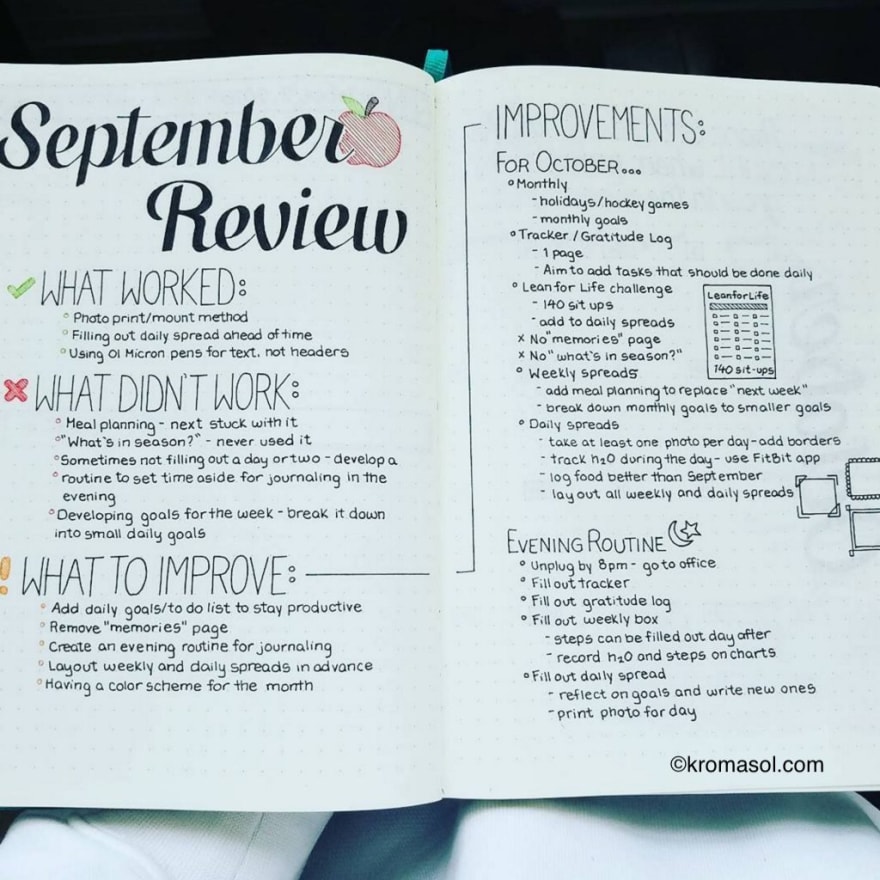 September
Review
WHAT WORKED:
Photo print/mount method
Filling out daily spread ahead of time
Using 01 Micron pens for text, not headers
WHAT DIDN'T WORK:
Meal planning - next stuck with it
"What's in season?" - never used it
Sometimes not filling out a day or two - develop a
routine to set time aside for journaling in the
evening
Developing goals for the week - break it down
into small daily goals
! WHAT TO IMPROVE:
Add daily goals/to do list to stay productive
Remove "memories" page
Create an evening routine for journaling
Layout weekly and daily spreads in advance
Having a color scheme for the month
IMPROVEMENTS:
FOR OCTOBER...
Monthly
- holidays/hockey games
- monthly goals
Tracker/Gratitude Log
- 1 page
- Aim to add tasks that should be done daily
Lean for Life challenge
- 140 sit ups
- add to daily spreads
x No "memories" page
x No "what's in season?"
Lean for Life
140 sit-ups
Weekly spreads
- add meal planning to replace "next week"
- break down monthly goals to smaller goals
Daily spreads
- take at least one photo per day - add borders
- track h2o during the day - use FitBit app
- log food better than September
- lay out all weekly and daily spreads
EVENING ROUTINE
Unplug by 8pm - go to office
Fill out tracker
Fill out gratitude log
Fill out weekly box
- steps can be filled out day after
- record h2o and steps on charts
Fill out daily spread
- reflect on goals and write new ones
- print photo for day
©kromasol.com